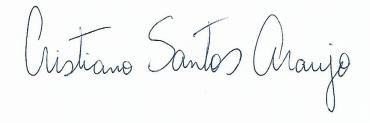 Cristiano Santos Araujo